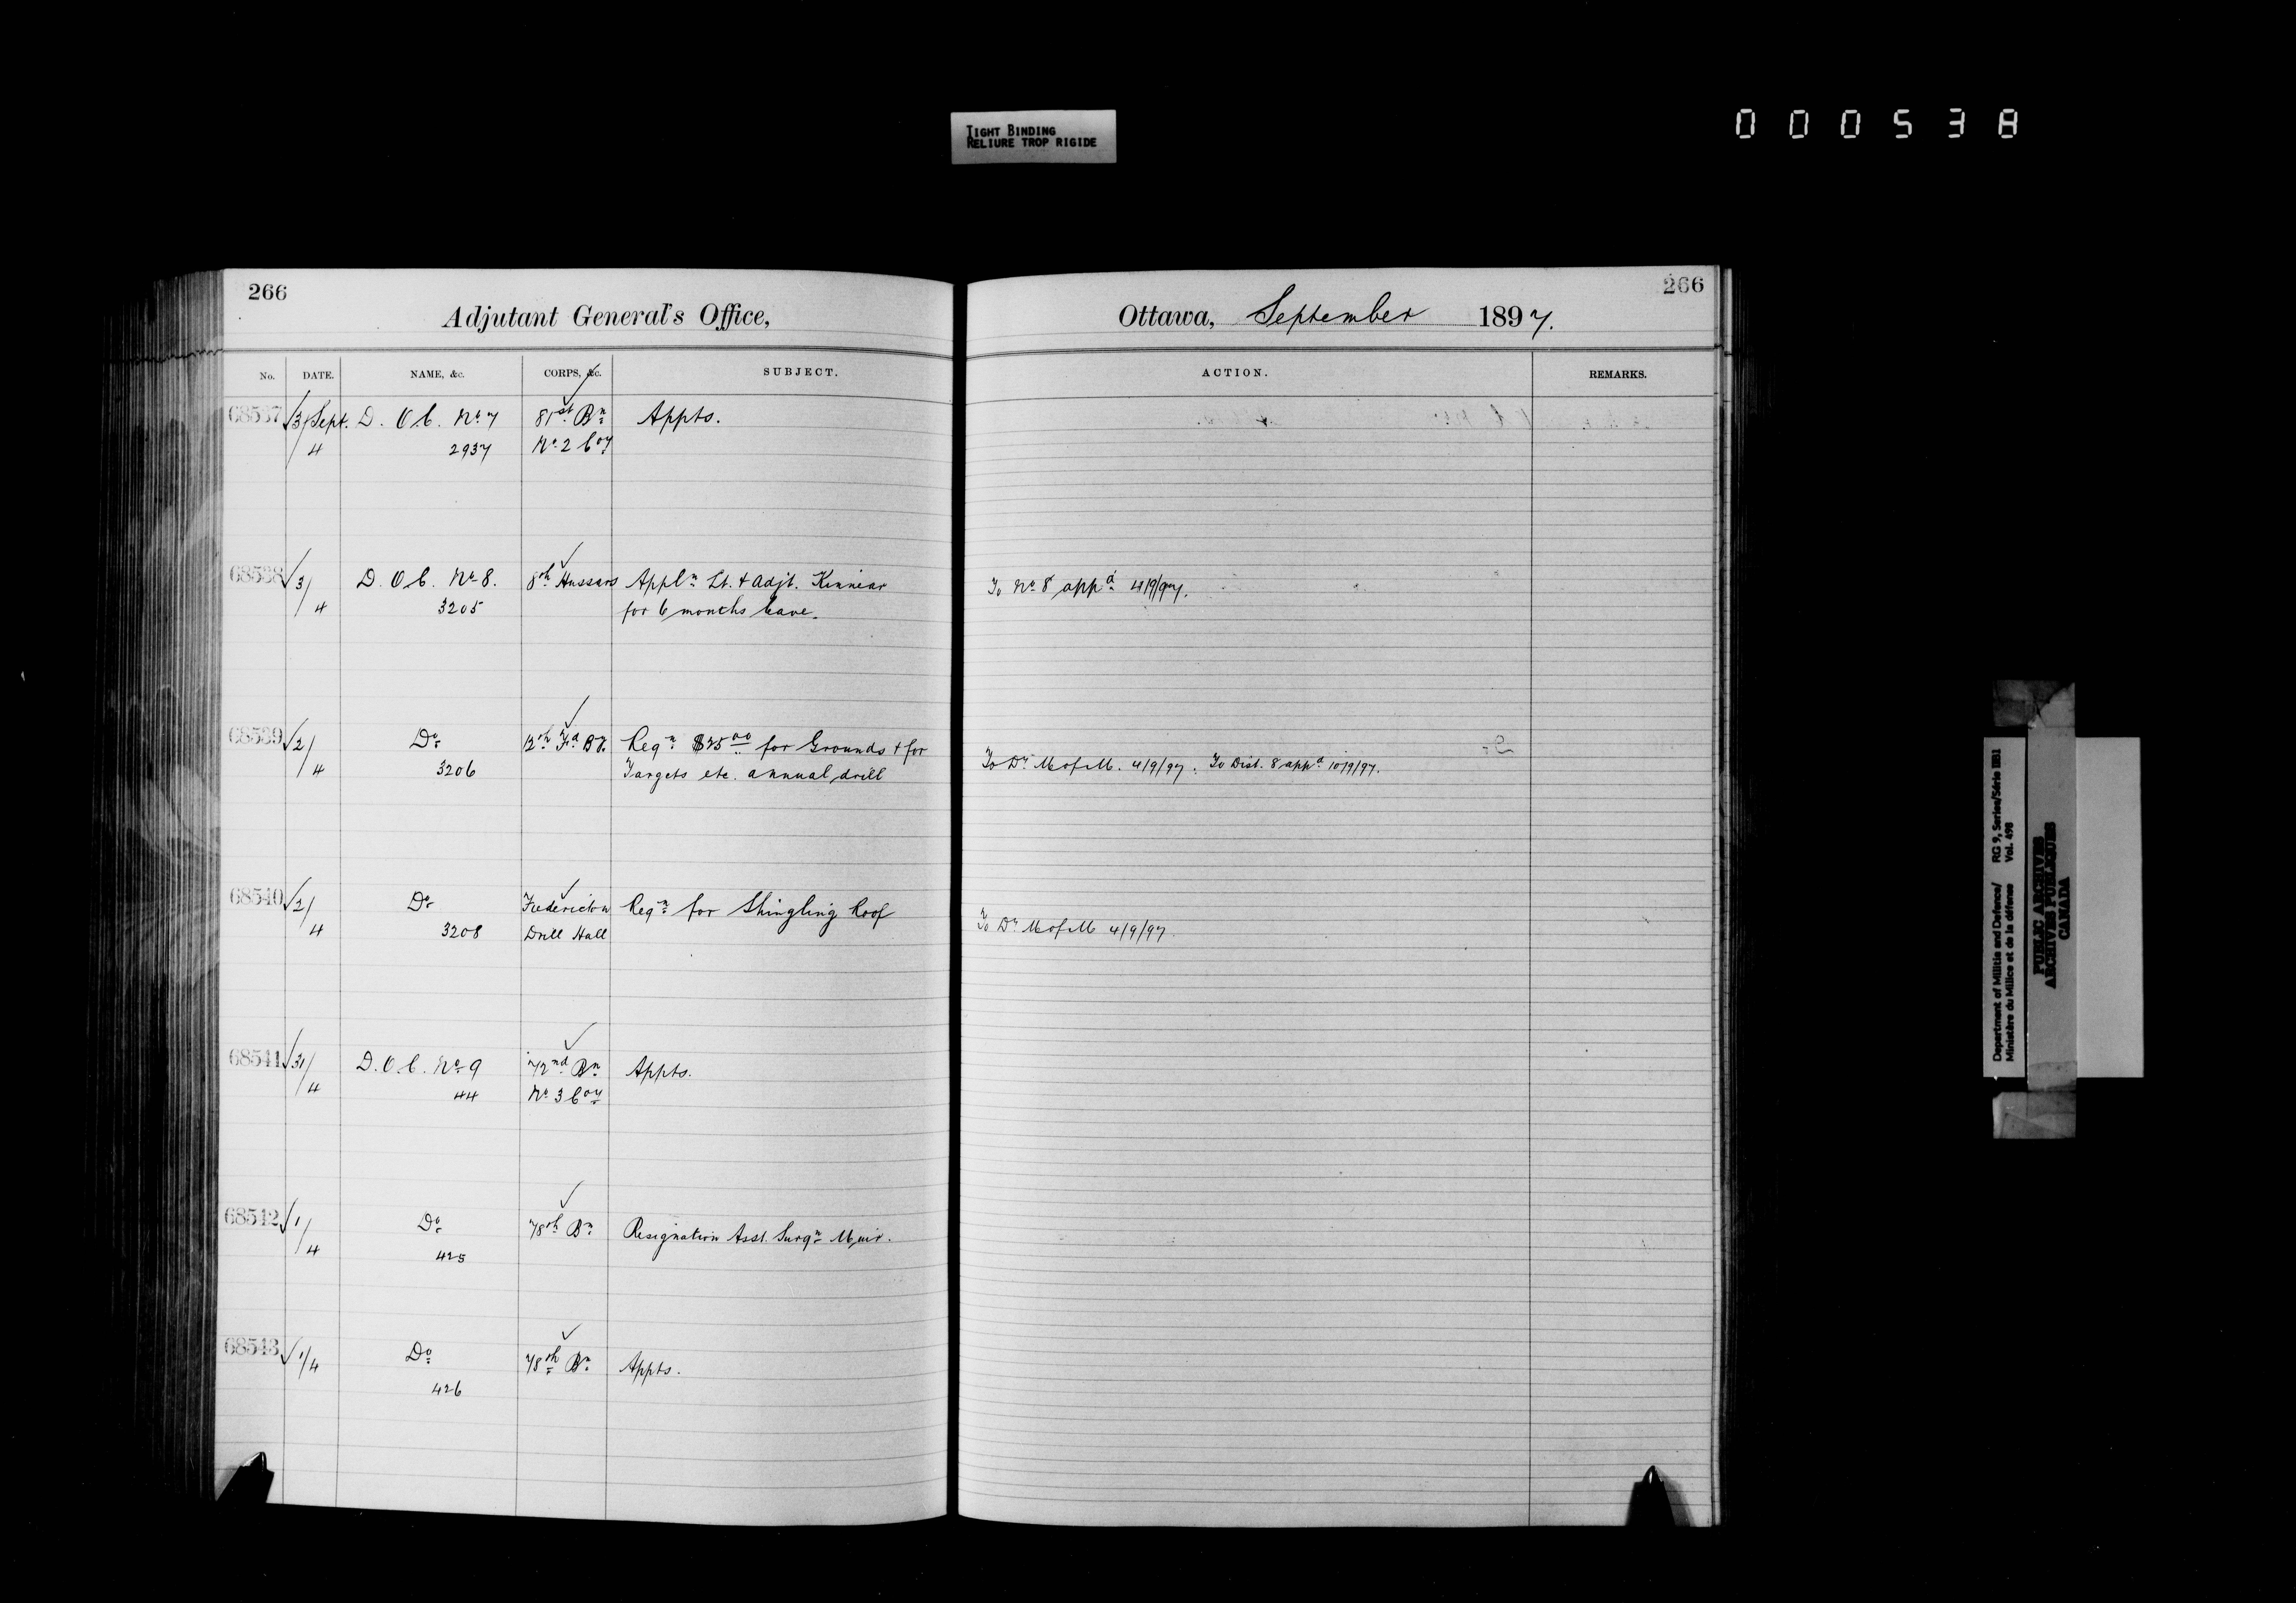 TIGHT BINDING
RELIURE TROP RIGIDE
000538
266
Adjutant General's Office,
No. DATE. NAME, &c. CORPS, &c. SUBJECT.
68537 3/4 Sept. D. O. C. No 7 2937 81st Bn No 2 Coy Appts.
68538 3/4 D. O. C. No 8. 3205 8th Hussars Appln Lt. & Adjt. Kinnear
for 6 months leave.
68539 2/4 Do 3206 12th Fd By. Reqn $25 00 for Grounds & for
Targets etc. annual drill
68540 2/4 Do 3208 Fredericton Drill Hall Reqn for Shingling Roof
68541 31/4 D. O. C. No 9 44 72nd Bn No 3 Coy Appts.
68542 1/4 Do 425 78th Bn Resignation Asst. Surgn Muir.
68543 1/4 Do 426 78th Bn Appts.
266
Ottawa, September 1897.
ACTION. REMARKS.
To No 8 appd 4/9/97.
To Dr M of M. 4/9/97. To Dist. 8 appd 10/9/97.
To Dr M of M 4/9/97.
Department of Militia and Defence/ RG 9, Series/Série IIB1
Ministère du Milice et de la défense Vol. 498
PUBLIC ARCHIVES
ARCHIVES PUBLIQUES
CANADA